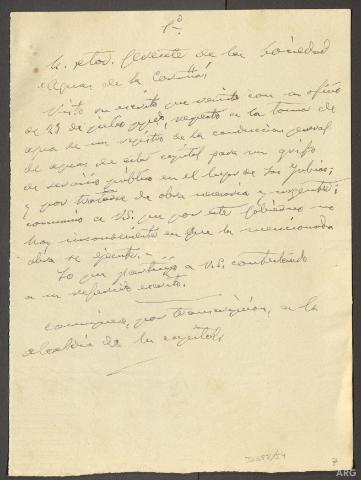 1º
Sr. Gerente de la Sociedad
Aguas de la Coruña
Visto su escrito que remite con su oficio
de 23 de julio respecto a la toma de
agua de un registro de la conducción general
de aguas de esta capital para un grifo
de servicio público en el lugar de Las Jubias;
y por tratarse de obra necesaria y urgente;
comunico a Vd. que por este Gobierno no
hay inconveniente en que la mencionada
obra se ejecute.-
Lo que participo a Vd. contestando
a su referido escrito.
comuníquese, por transcripción, a la
alcaldía de la capital
7
ARG